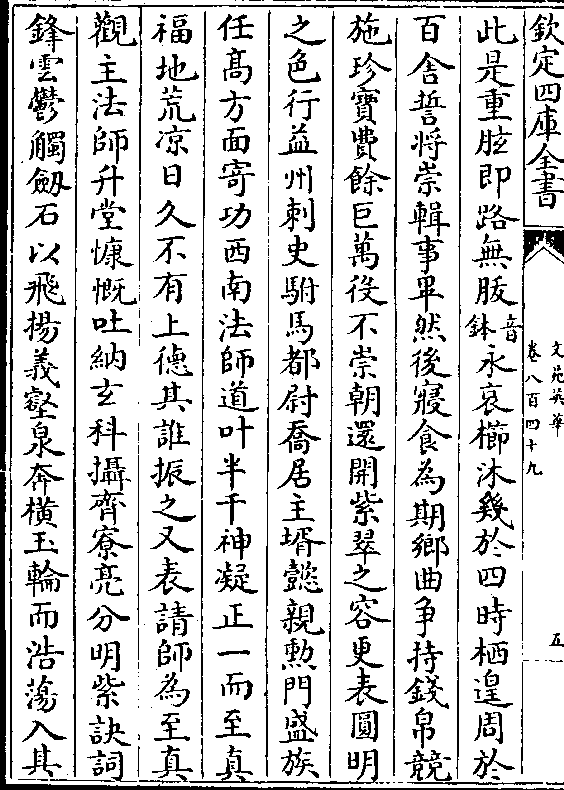 欽定四庫全書
文苑英華
卷八百四十九
五
此是重胘即路無胈音鉢永哀櫛沐幾於四時栖遑周於
百舍誓将崇輯事畢然後寢食為期鄉曲争持錢帛競
施珍寶費餘巨萬役不崇朝還開紫翠之容更表圓明
之色行益州刺史駙馬都尉喬居主壻懿親勲門盛族
任髙方面寄功西南法師道叶半千神凝正一而至真
福地荒凉日久不有上德其誰振之又表請師為至真
觀主法師升堂慷慨吐納玄科攝齊寮亮分明紫訣詞
鋒雲鬱觸劒石以飛揚義壑泉奔横玉輪而浩蕩入其